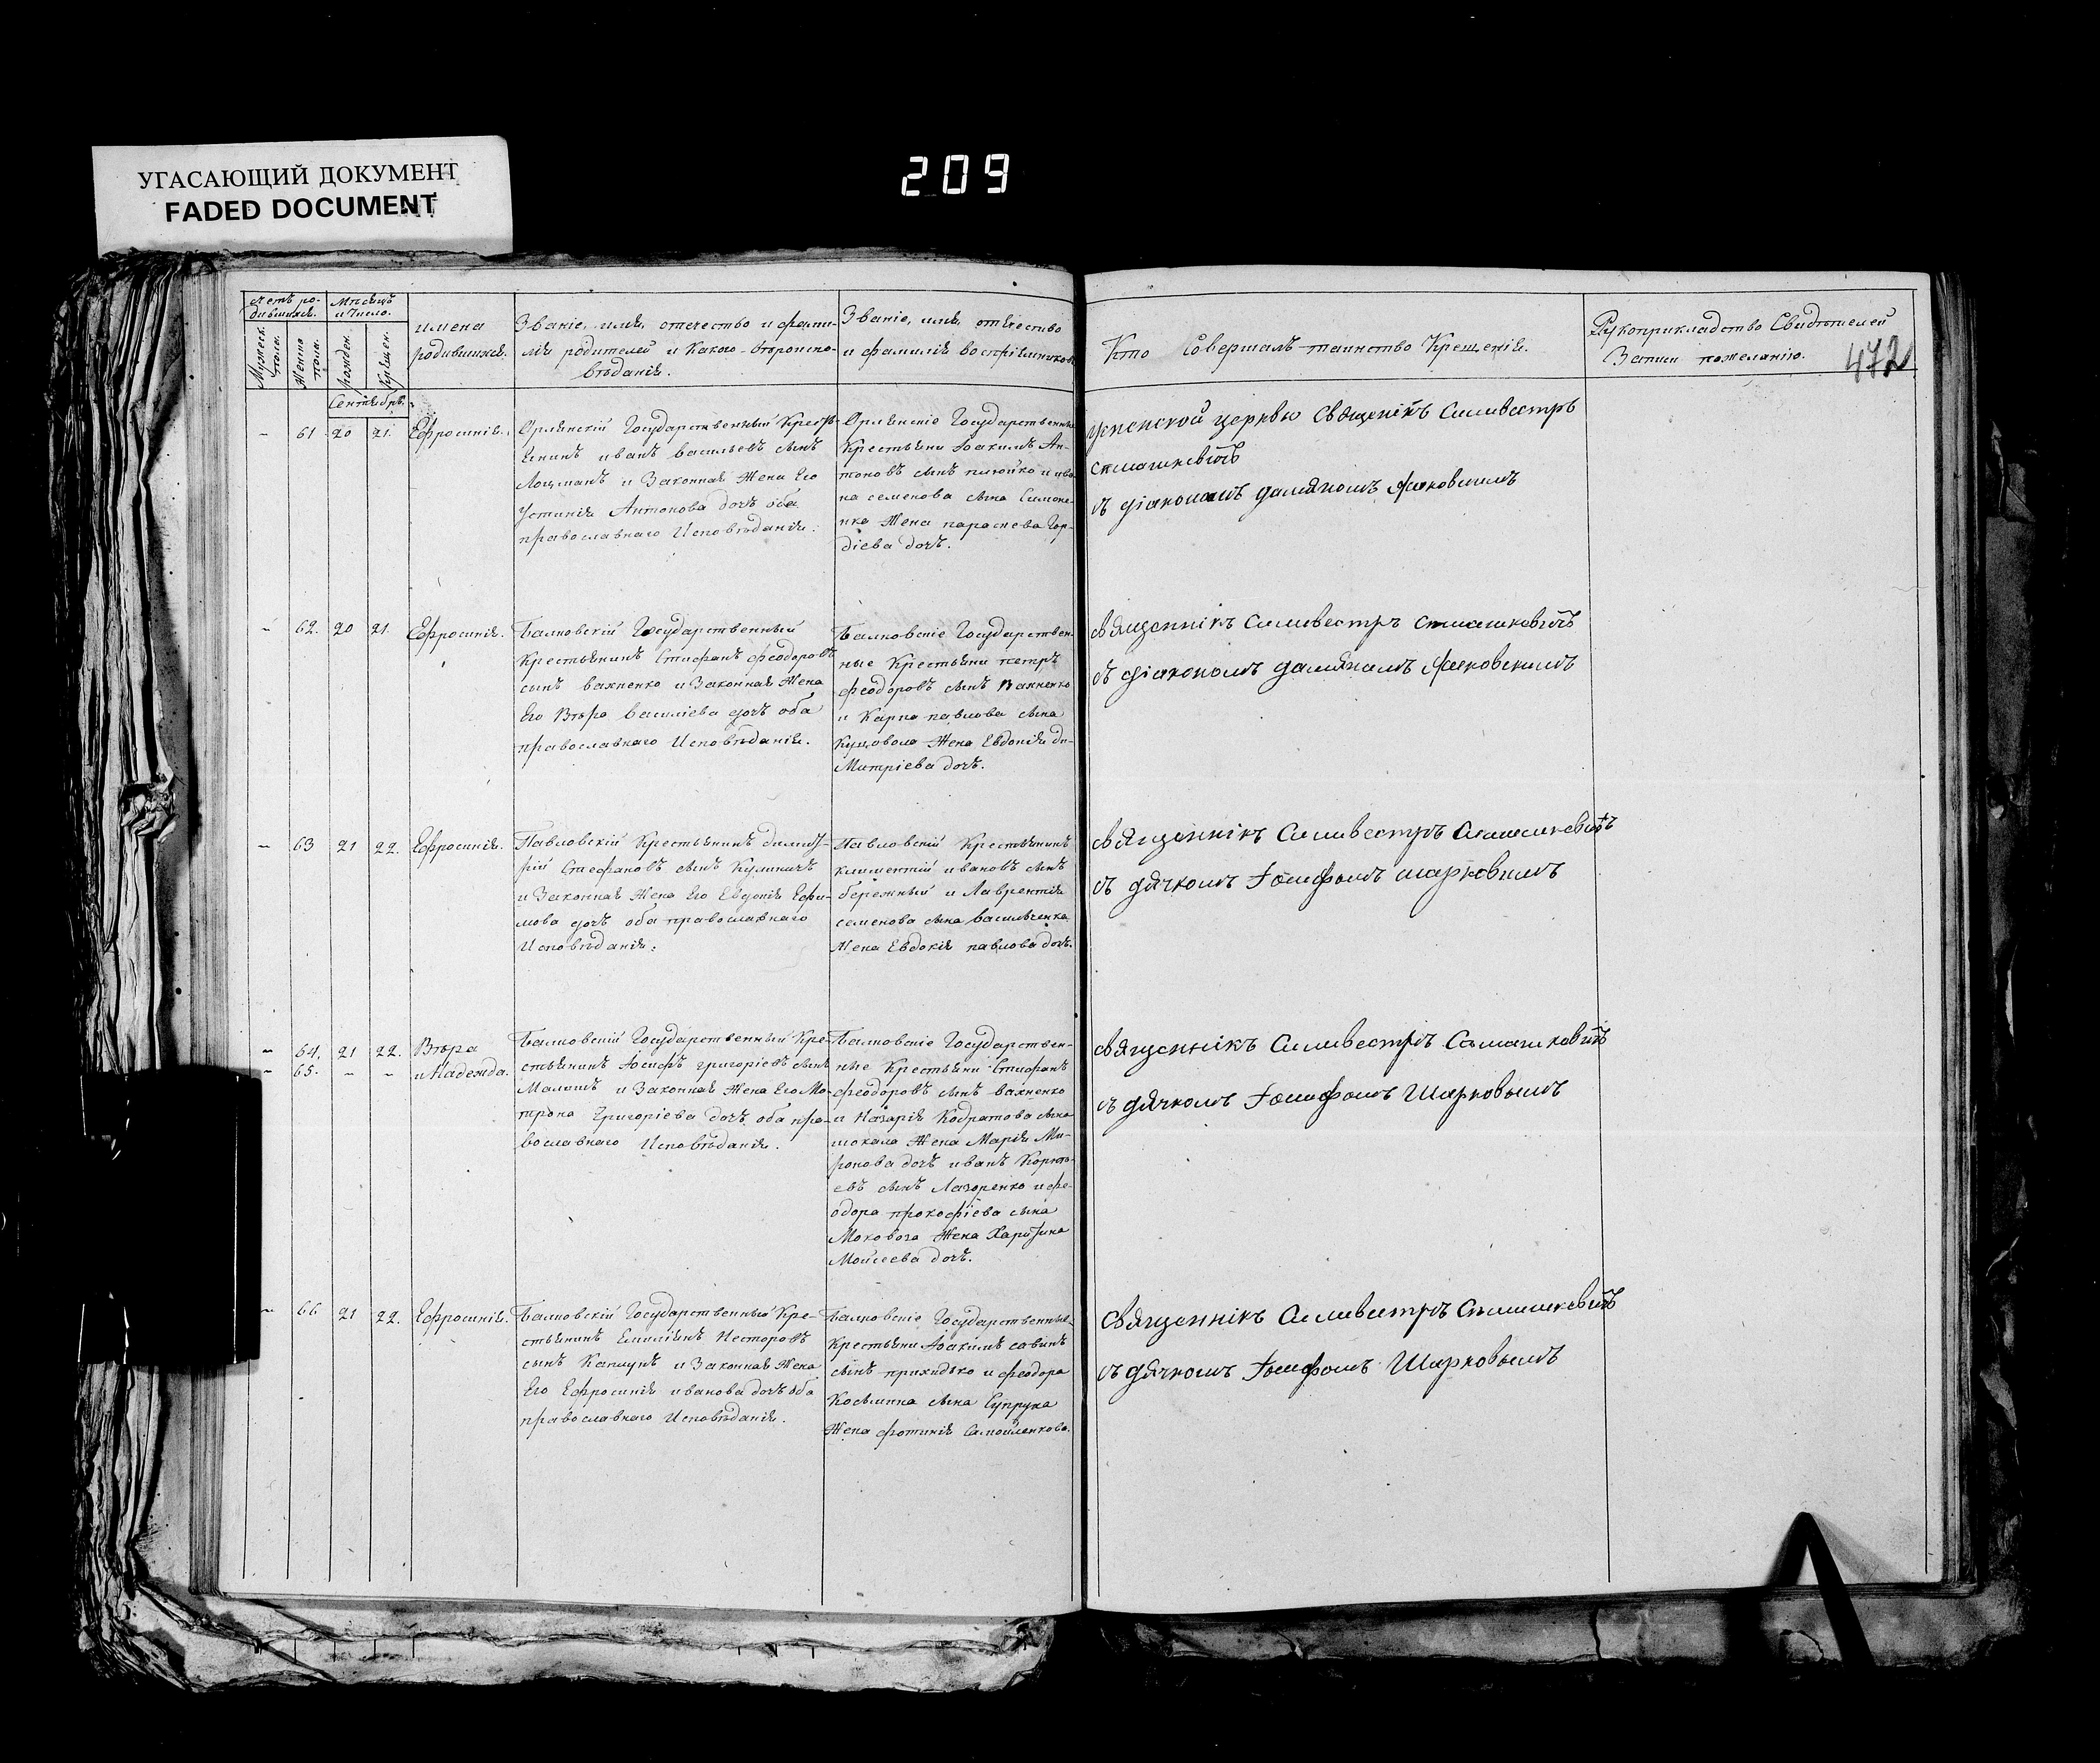 УГАСАЮЩИЙ ДОКУМЕНТ
FADED DOCUMENT
209
472
Счетъ ро-
дившихся.
Мѣсяцъ
и Число.
Мужеск.
пола.
Женска
пола.
рожден.
Крещен.
имена
родившихся.
Званіе, имя, отечество и фами-
лія родителей и Какого вѣроиспо-
вѣданія.
Званіе, имя, отечество
и фамилія воспріемниковъ
Кто Совершалъ таинство Крещенія.
Рукоприкладство Свидѣтелей
Записи пожеланію.
Сентябрь.
61 20 21. Ефросинія.
Орлянскій Государственный Крестья-
янинъ иванъ васильевъ сынъ
Лоцманъ и Законная Жена Его
Устинія Антонова дочь оба
православнаго Исповѣданія.
Орлянскіе Государственные
Крестьяни Іоакимъ Ан-
тоновъ сынъ и ива
на семенова сына Симоне-
нка Жена параскева Гор-
діева дочь.
Успенской церкви Священікъ Силивестръ
Стишкевичъ
съ діакономъ Даміяномъ Яновскимъ
62. 20 21. Ефросинія.
Балковскій Государственный
Крестьянинъ Стифанъ феодоровъ
сынъ вахненко и Законная Жена
Его Вѣра василіева дочь оба
православнаго Исповѣданія.
Балковскіе Государствен-
ные Крестьяни петръ
феодоровъ сынъ Вахненко
и Карпа павлова сына
Куцовола Жена Евдокія Ди-
Митріева дочь.
священнікъ Силивестръ
съ діакономъ Даміяномъ Яновскимъ
63 21 22. Ефросинія.
Павловскій Крестьянинъ димит-
рій Стефановъ сынъ Куличъ
и Законная Жена Его Евдокія Ефи-
мова дочь оба православнаго
Исповѣданія.
Павловскій Крестьянинъ
климентій ивановъ сынъ
бережный и Лаврентія
семенова сына васильченка
Жена Евдокія павлова дочь.
священнікъ Силивестръ
съ дячкомъ Іосифомъ Шарковымъ
64. 21 22. Вѣра
65. и Надежда.
Балковскій Государственный Кре-
стьянинъ Іосифъ григоріевъ сынъ
Малышъ и Законная Жена Его Мо-
трона Григоріева дочь оба пра-
вославнаго Исповѣданія.
Балковскіе Государствен-
ные Крестьяни Стифанъ
феодоровъ сынъ вахненко
и Назарія Кодратова сына
шокала Жена Марія Ми-
ронова дочь иванъ Корнѣ-
евъ сынъ Лазоренко и фе-
одора прокофіева сына
Мохового Жена Харитина
Мойсеева дочь.
священнікъ Силивестръ
съ дячкомъ Іосифомъ Шарковымъ
66 21 22. Ефросинія.
Балковскій Государственный Кре-
стьянинъ Емиліянъ Несторовъ
сынъ Каплунъ и Законная Жена
Его Ефросинія иванова дочь оба
православнаго Исповѣданія.
Балковскіе Государственные
Крестьяни Іоакимъ савинъ
сынъ приходько и феодора
Косьмина сына Супруна
Жена фотинія Самойленкова.
священнікъ Силивестръ
съ дячкомъ Іосифомъ Шарковымъ